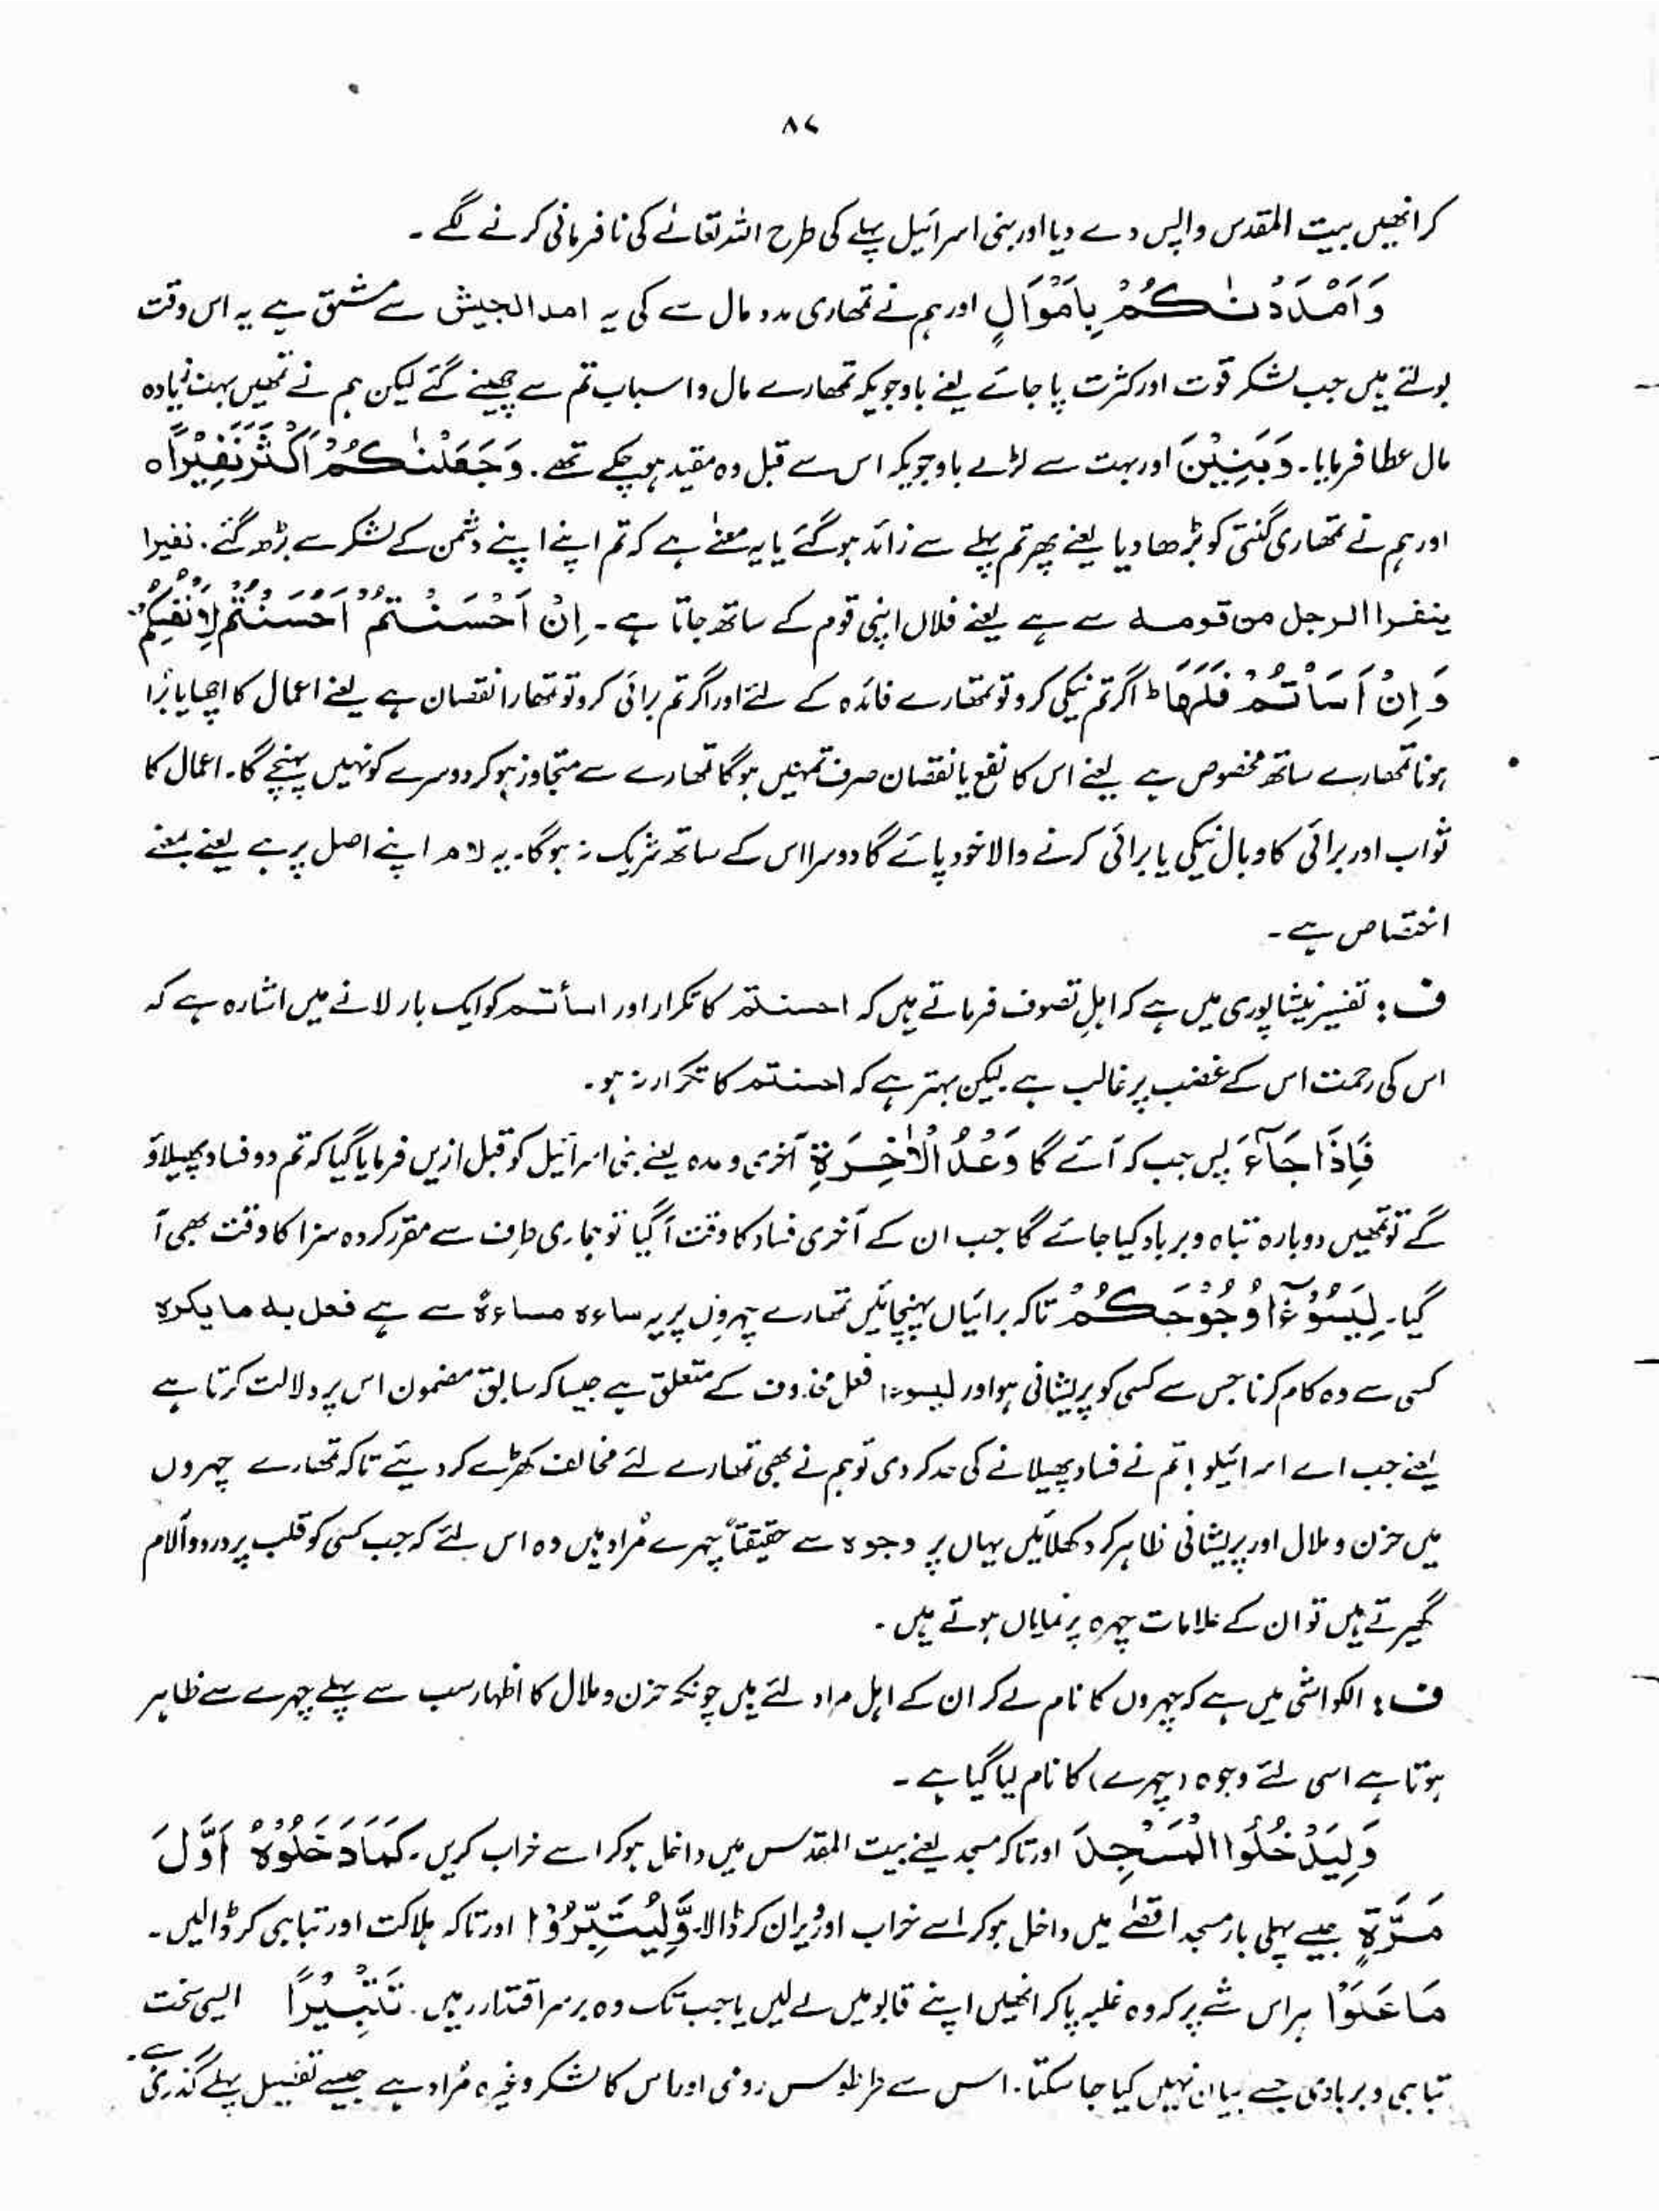 ۸۷
کر انھیں بیت المقدس واپس دے دیا اور بنی اسرائیل پہلے کی طرح اللہ تعالےٰ کی نافرمانی کرنے لگے ۔
وَ اَمْدَدْنٰكُمْ بِاَمْوَالٍ اور ہم نے تمھاری مدد مال سے کی یہ امد الجیش سے مشتق ہے یہ اس وقت
بولتے ہیں جب لشکر قوت اور کثرت پا جائے یعنے باوجودیکہ تمھارے مال و اسباب تم سے چھینے گئے لیکن ہم نے تمھیں بہت زیادہ
مال عطا فرمایا۔ وَبَنِيْنَ اور بہت سے لڑکے باوجودیکہ اس سے قبل وہ مقید ہو چکے تھے۔ وَجَعَلْنٰكُمْ اَكْثَرَ نَفِيْرًا ہ
اور ہم نے تمھاری گنتی کو بڑھا دیا یعنے پھر تم پہلے سے زائد ہو گئے یا یہ معنےٰ ہے کہ تم اپنے اپنے دشمن کے لشکر سے بڑھ گئے۔ نفیرا
ینفرا الرجل من قومہ سے ہے یعنے فلاں اپنی قوم کے ساتھ جاتا ہے۔ اِنْ اَحْسَنْتُمْ اَحْسَنْتُمْ لِاَنْفُسِكُمْ
وَ اِنْ اَسَاْتُمْ فَلَهَا ط اگر تم نیکی کرو تو تمھارے فائدہ کے لئے اور اگر تم برائی کرو تو تمھارا نقصان ہے یعنے اعمال کا اچھا یا بُرا
ہونا تمھارے ساتھ مخصوص ہے یعنے اس کا نفع یا نقصان صرف تمہیں ہو گا تمھارے سے متجاوز ہو کر دوسرے کو نہیں پہنچے گا۔ اعمال کا
ثواب اور برائی کا وبال نیکی یا برائی کرنے والا خود پائے گا دوسرا اس کے ساتھ شریک نہ ہو گا۔ یہ لام اپنے اصل پر ہے یعنے بمعنے
اختصاص ہے ۔
ف: تفسیر نیشاپوری میں ہے کہ اہلِ تصوف فرماتے ہیں کہ احسنتم کا تکرار اور اسأتم کو ایک بار لانے میں اشارہ ہے کہ
اس کی رحمت اس کے غضب پر غالب ہے لیکن بہتر ہے کہ احسنتم کا تکرار نہ ہو۔
فَاِذَا جَآءَ پس جب کہ آئے گا وَعْدُ الْاٰخِرَةِ آخری وعدہ یعنے بنی اسرائیل کو قبل ازیں فرمایا گیا کہ تم دو فساد پھیلاؤ
گے تو تمھیں دوبارہ تباہ و برباد کیا جائے گا جب ان کے آخری فساد کا وقت آ گیا تو ہماری طرف سے مقرر کردہ سزا کا وقت بھی آ
گیا۔ لِيَسُوْٓءٗا وُجُوْهَكُمْ تاکہ برائیاں پہنچائیں تمھارے چہروں پر یہ ساءہ مساءۃً سے ہے فعل بہ ما یکرہ
کسی سے وہ کام کرنا جس سے کسی کو پریشانی ہو اور لیسوءا فعل مخذوف کے متعلق ہے جیسا کہ سابق مضمون اس پر دلالت کرتا ہے
یعنے جب اے اسرائیلو! تم نے فساد پھیلانے کی حد کر دی تو ہم نے بھی تمھارے لئے مخالف کھڑے کر دیئے تاکہ تمھارے چہروں
میں حزن و ملال اور پریشانی ظاہر کر دکھلائیں یہاں پر وجوہ سے حقیقتاً چہرے مُراد ہیں وہ اس لئے کہ جب کسی کو قلب پر درد و آلام
گھیرتے ہیں تو ان کے علامات چہرہ پر نمایاں ہوتے ہیں ۔
ف: الکواشی میں ہے کہ چہروں کا نام لے کر ان کے اہل مراد لئے ہیں چونکہ حزن و ملال کا اظہار سب سے پہلے چہرے سے ظاہر
ہوتا ہے اسی لئے وجوہ (چہرے) کا نام لیا گیا ہے ۔
وَ لِيَدْخُلُوا الْمَسْجِدَ اور تاکہ مسجد یعنے بیت المقدس میں داخل ہو کر اسے خراب کریں۔ كَمَا دَخَلُوْهُ اَوَّلَ
مَرَّةٍ جیسے پہلی بار مسجد اقصٰے میں داخل ہو کر اسے خراب اور ویران کر ڈالا۔ وَّلِيُتَبِّرُوْا اور تاکہ ہلاکت اور تباہی کر ڈالیں ۔
مَا عَلَوْا ہر اس شے پر کہ وہ غلبہ پا کر انھیں اپنے قابو میں لے لیں یا جب تک وہ برسر اقتدار رہیں۔ تَتْبِيْرًا ایسی سخت
تباہی و بربادی جسے بیان نہیں کیا جا سکتا۔ اس سے طرطوس رومی اور اس کا لشکر وغیرہ مُراد ہے جیسے تفصیل پہلے گذری ہے۔